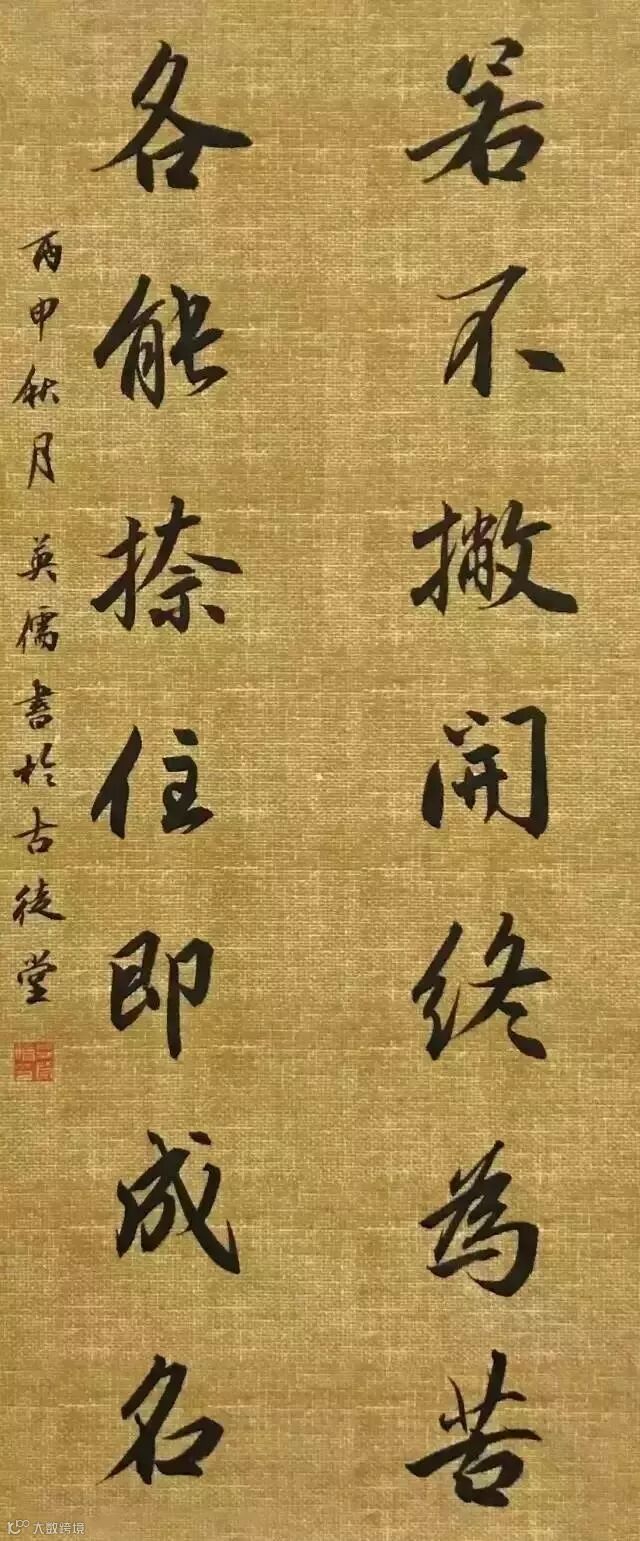 若不撇開終為苦
各能捺住即成名
丙申秋月英儒書於古徒堂
大数跨境